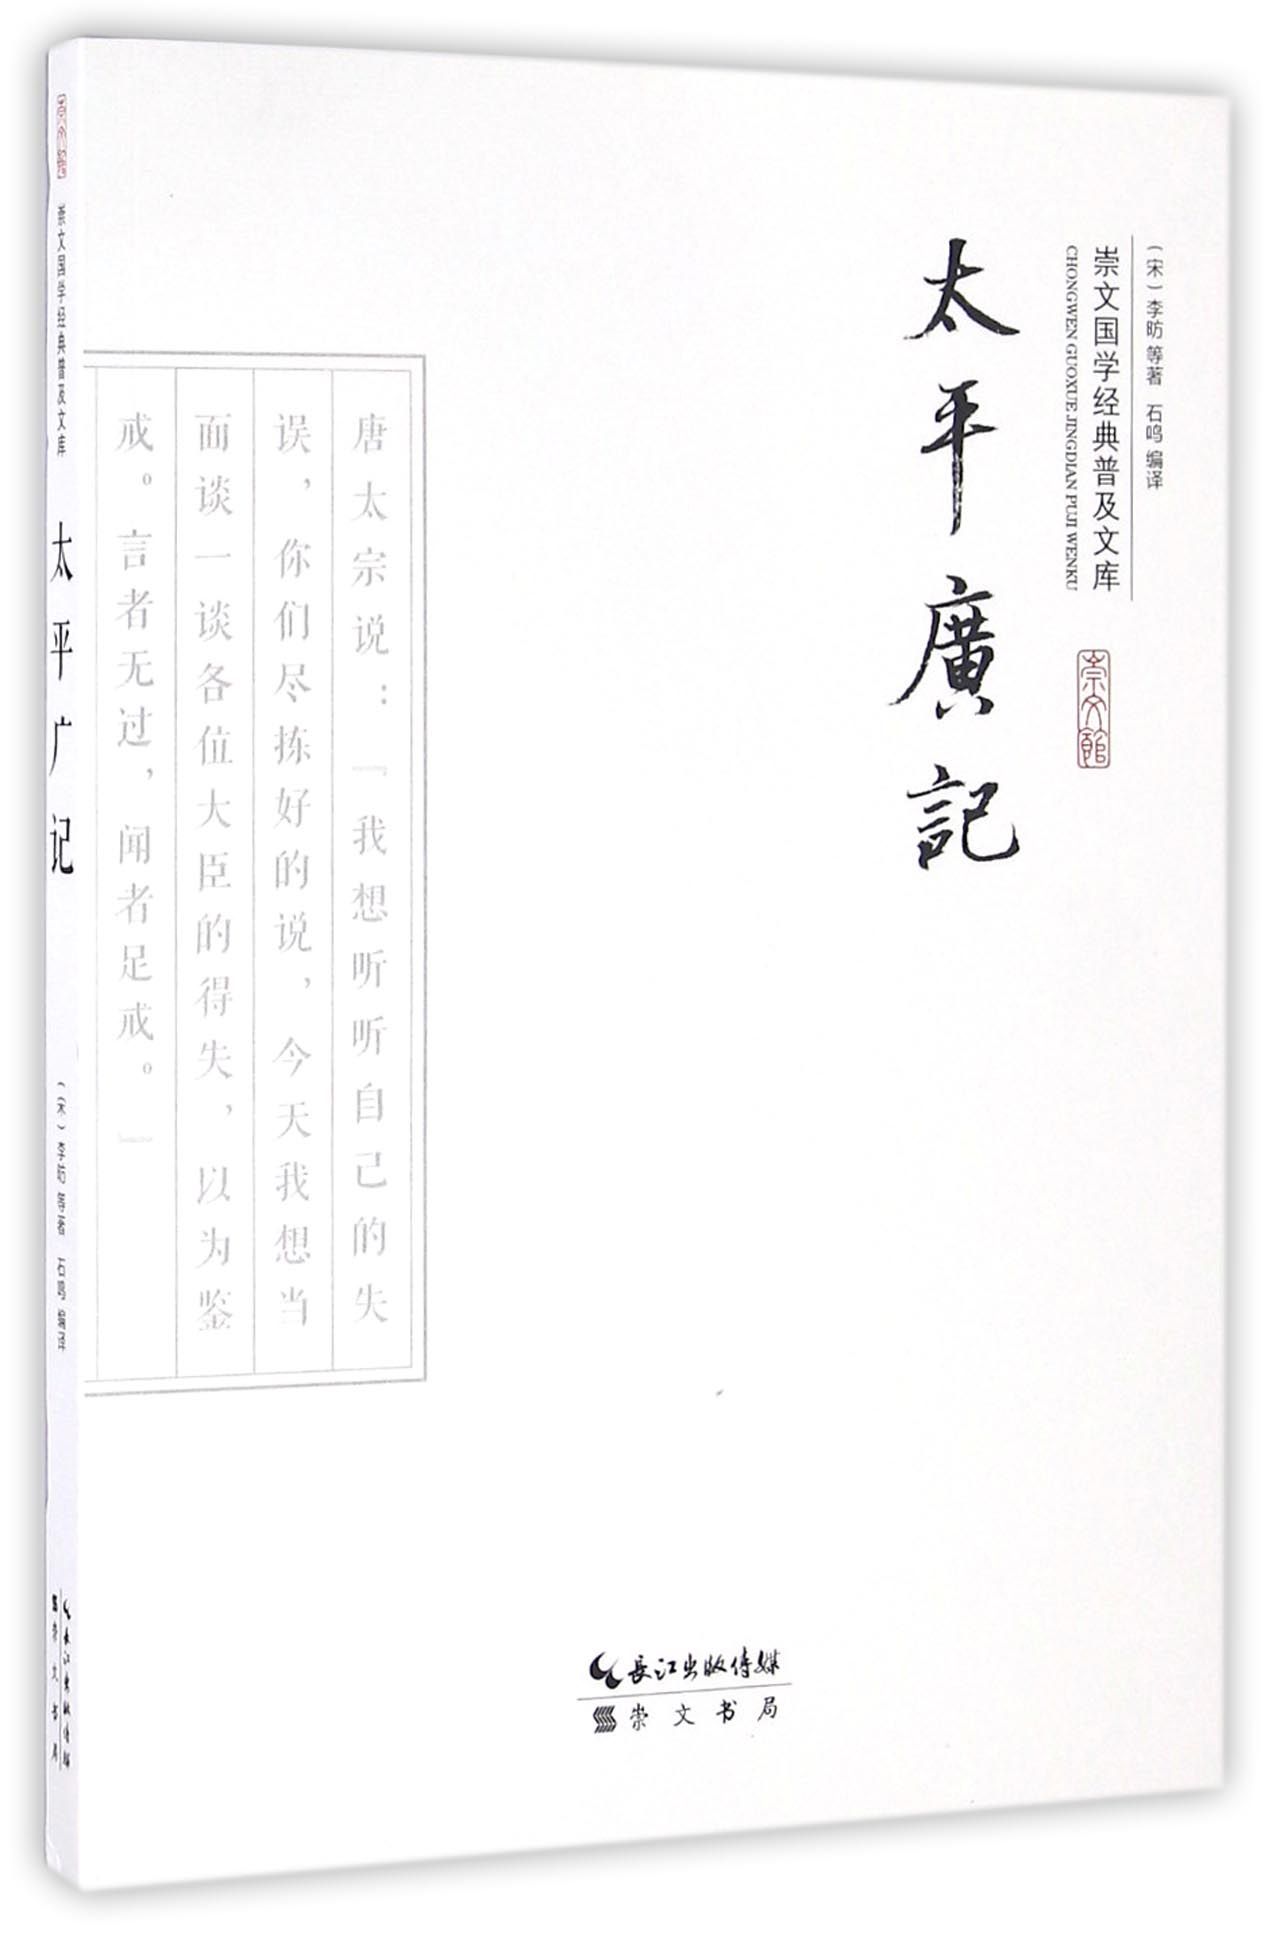 （宋）李昉 等著 石鸣 编译
崇文国学经典普及文库
CHONGWEN GUOXUE JINGDIAN PUJI WENKU
崇文館
太平廣記
唐太宗说：『我想听听自己的失
误，你们尽拣好的说，今天我想当
面谈一谈各位大臣的得失，以为鉴
戒。言者无过，闻者足戒。』
長江出版传媒
崇文书局
崇文館
崇文国学经典普及文库
太平广记
（宋）李昉 等著 石鸣 编译
長江出版传媒
崇文书局